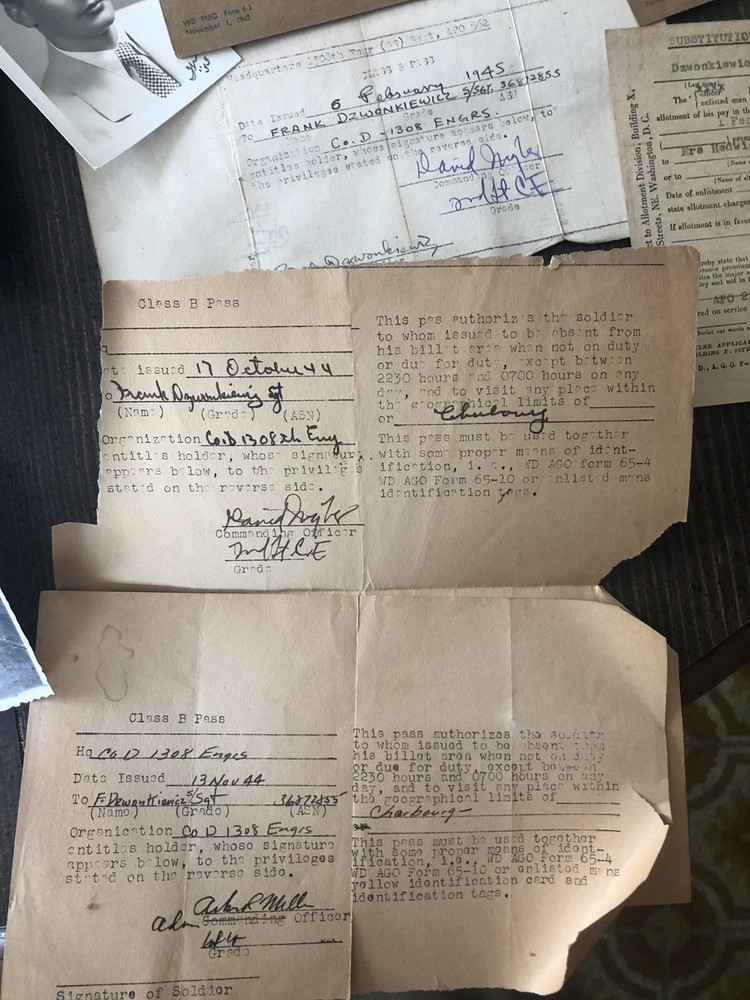 WD PMG Form 6-1
November 1, 1942
Headquarters 1308th Engr (GS) Regt, APO 562
CLASS B PASS
Date Issued 6 February 1945
To FRANK DZWONKIEWICZ S/SGT. 36872855
Name Grade ASN
Organization Co. D - 1308 ENGRS.
entitles holder, whose signature appears below, to
the privileges stated on the reverse side.
Commanding Officer
Grade
Frank Dzwonkiewicz
SUBSTITUTION
Dzwonkiewic
The officer
enlisted man
allotment of his pay in th
1 Fe
to Mrs Hedwi
or to
(Name of al
Date of enlistment
state allotment charges
If allotment is in favor
ereby state that
APO 2
red on service
Strike out words n
ERE APPLICA
D., A. G. O. F
ct to Allotment Division, Building X,
Streets, NE. Washington, D. C.
Class B Pass
ate issued 17 October 44
o Frank Dzwonkiewicz Sgt
(Name) (Grade) (ASN)
Organization Co. D 1308th Eng
entitles holder, whose signature
appears below, to the privileges
stated on the reverse side.
Commanding Officer
Grade
This pas authorizes the soldier
to whom issued to be absent from
his billet area when not on duty
or due for duty, except between
2230 hours and 0700 hours on any
day, and to visit any place within
the geographical limits of
or Cherbourg
This pass must be used together
with some proper means of ident-
ification, i. e., WD AGO form 65-4
WD AGO Form 65-10 or enlisted mans
identification tags.
Class B Pass
Hq Co D 1308 Engrs
Date Issued 13 Nov 44
To F. Dzwonkiewicz S/Sgt 36872855
(Name) (Grade) (ASN)
Organization Co D 1308 Engrs
entitles holder, whose signature
appears below, to the privileges
stated on the reverse side.
Adm Commanding Officer
Grade
Signature of Soldier
This pass authorizes the soldier
to whom issued to be absent from
his billet area when not on duty
or due for duty, except between
2230 hours and 0700 hours on any
day, and to visit any place within
the geographical limits of
Cherbourg
This pass must be used together
with some proper means of ident-
ification, i.e., WD AGO Form 65-4
WD AGO Form 65-10 or enlisted mans
yellow identification card and
identification tags.